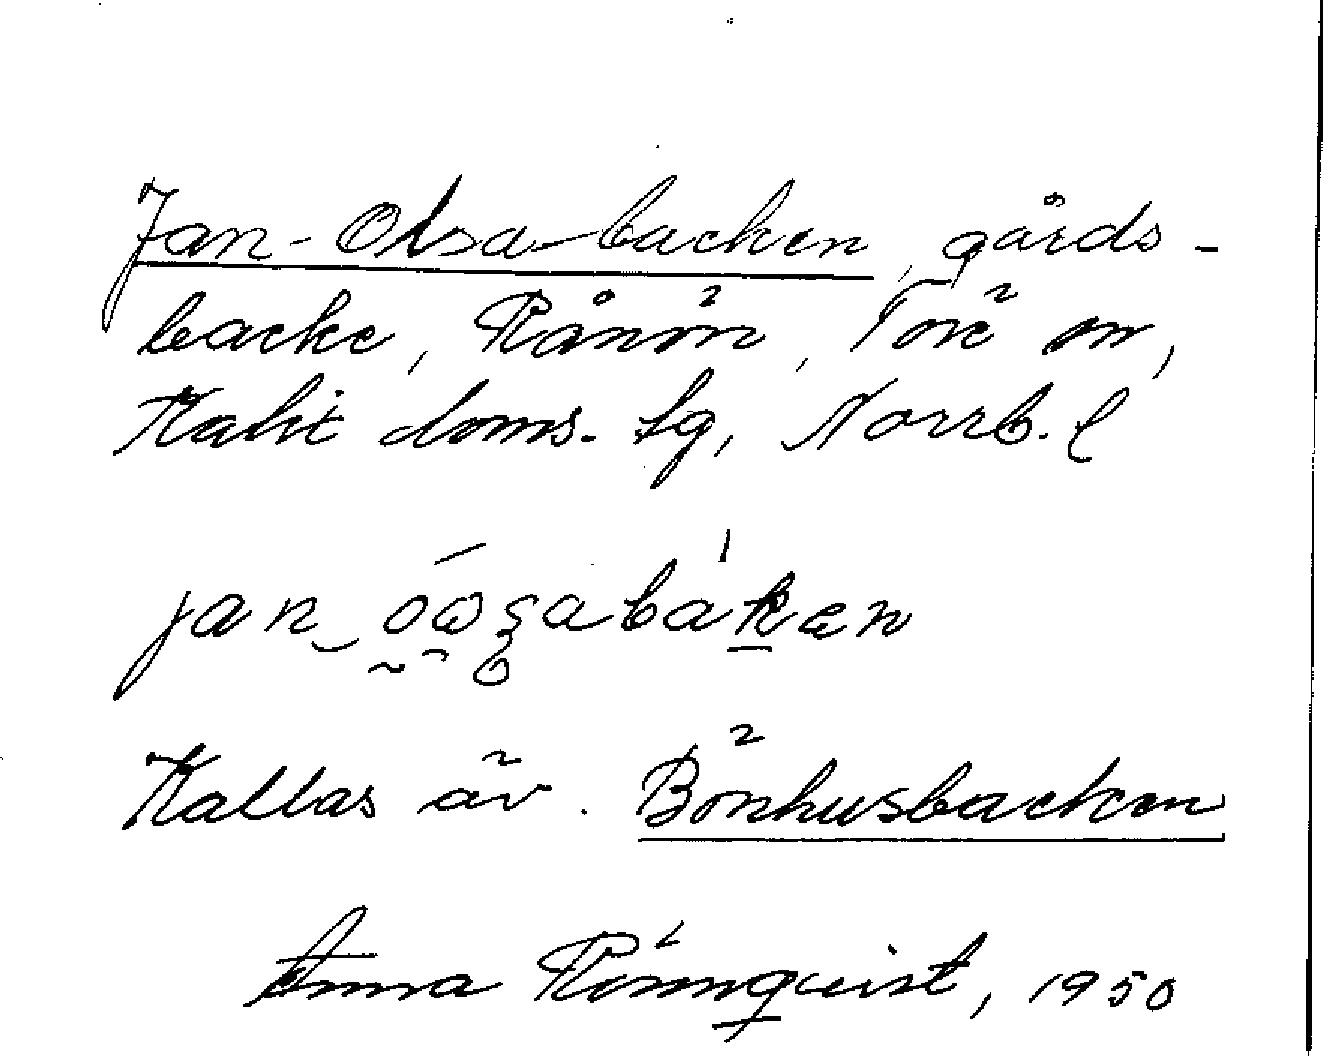 Jan-Olsa-backen, gårds-
backe, Rånön, Töre sn,
Kalix doms. tg, Norrb. l
Kallas äv. Bönhusbacken
Anna Rönnquist, 1950